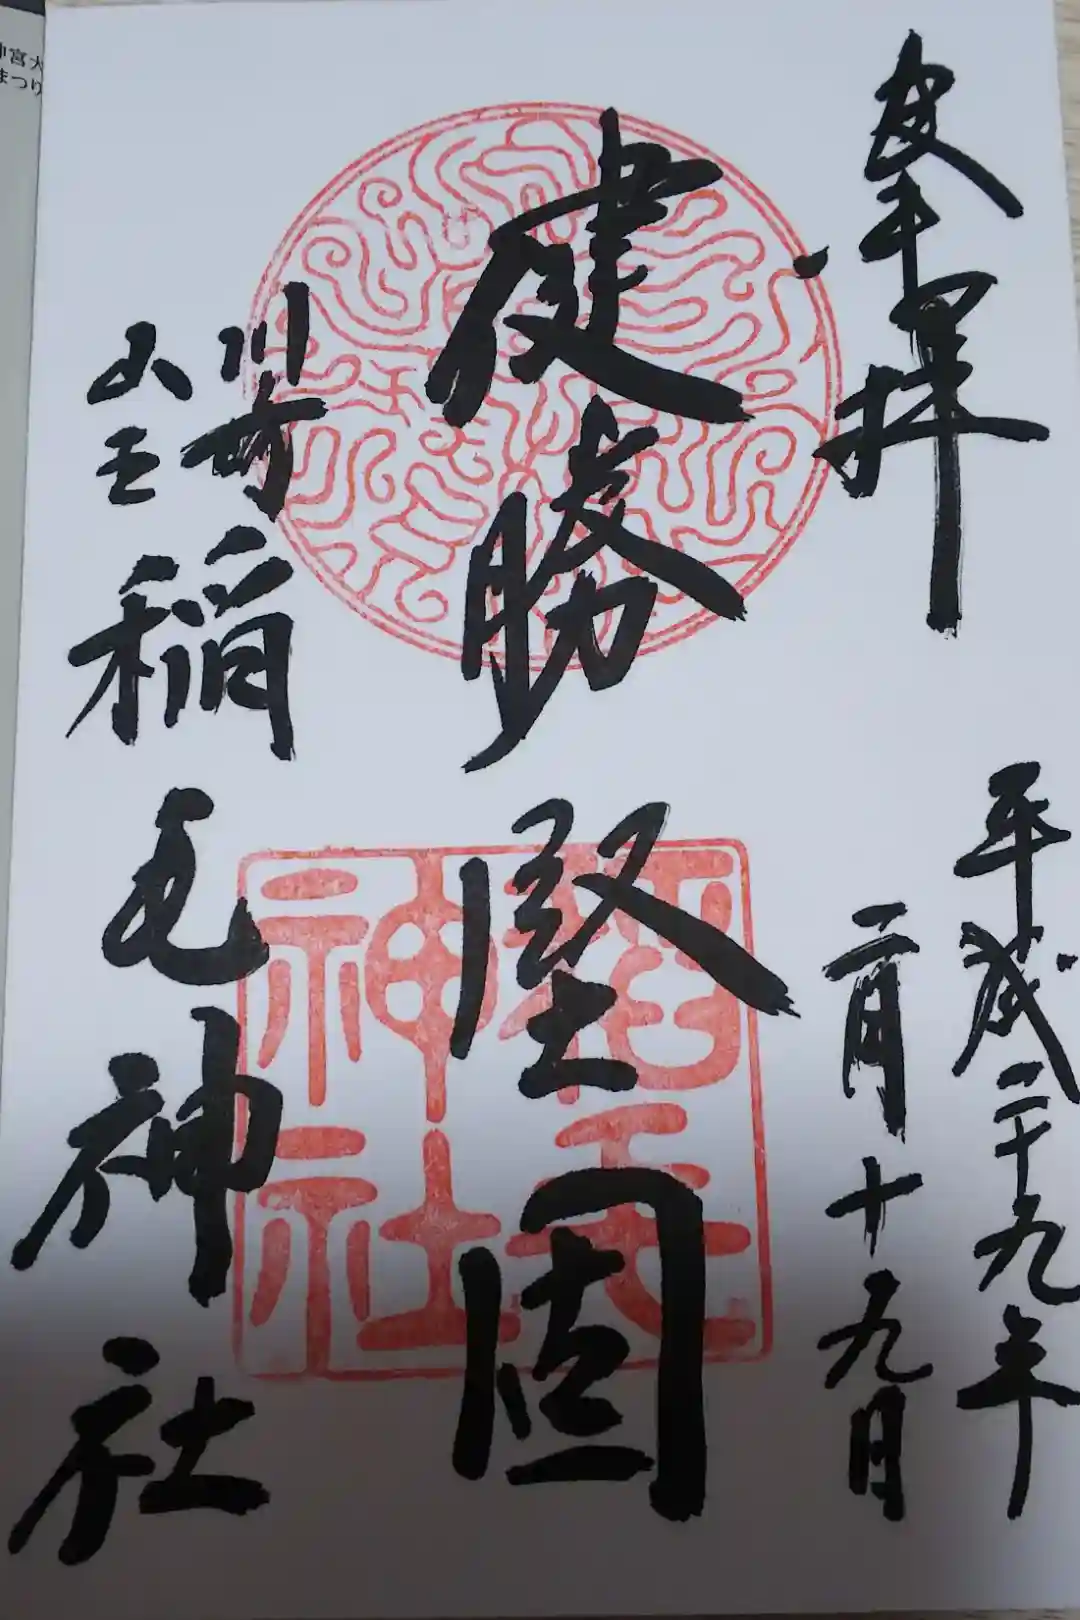 奉拝
平成二十九年
二月十九日
健勝
堅固
川崎
山王
稲毛神社
稲毛
神社
神宮大
まつり